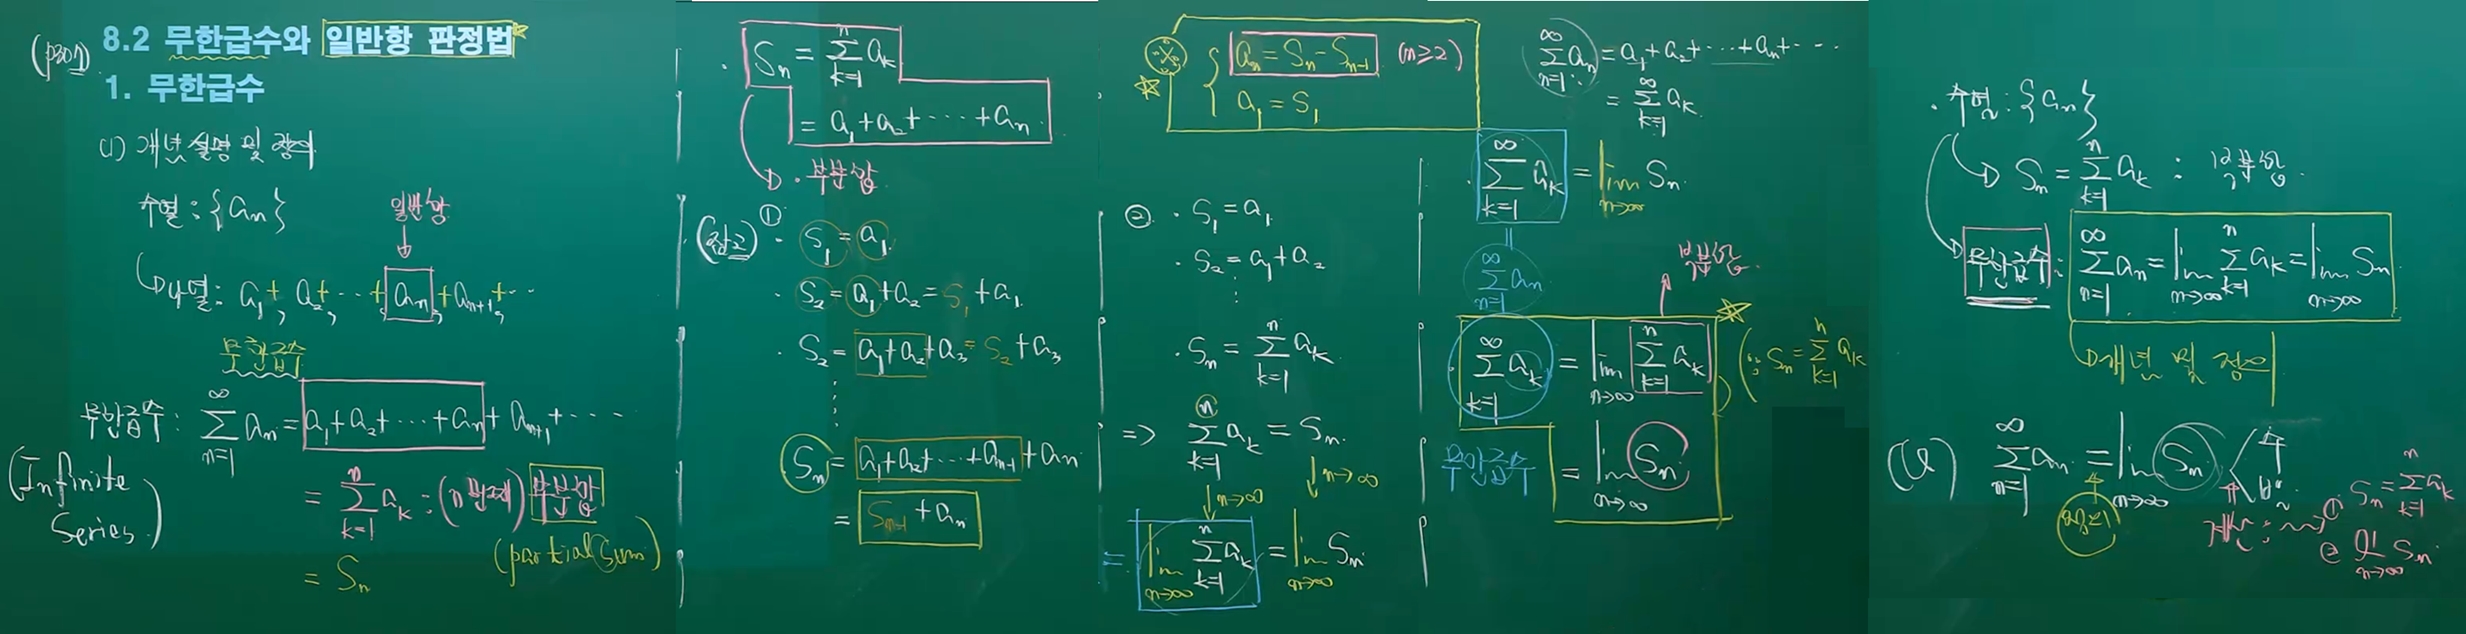 (p307)
8.2 무한급수와 일반항 판정법
1. 무한급수
(1) 개념 설명 및 정의
수열 : {aₙ}
일반항
나열 : a₁ + , a₂ + , ⋯ + , aₙ , + aₙ₊₁ , + ⋯
무한급수
무한급수 : ∑_{n=1}^{∞} aₙ = a₁ + a₂ + ⋯ + aₙ + aₙ₊₁ + ⋯
(Infinite Series)
= ∑_{k=1}^{n} aₖ : (n 번째) 부분합
(partial Sum)
= Sₙ
· Sₙ = ∑_{k=1}^{n} aₖ
= a₁ + a₂ + ⋯ + aₙ
· 부분합
(참고) ① · S₁ = a₁
· S₂ = a₁ + a₂ = S₁ + a₁
· S₂ = a₁ + a₂ + a₃ = S₂ + a₃
⋮
Sₙ = a₁ + a₂ + ⋯ + aₙ₋₁ + aₙ
= Sₙ₋₁ + aₙ
※ { aₙ = Sₙ − Sₙ₋₁ (n≥2)
a₁ = S₁
② · S₁ = a₁
· S₂ = a₁ + a₂
⋮
· Sₙ = ∑_{k=1}^{n} aₖ
=> ∑_{k=1}^{n} aₖ = Sₙ
↓ n→∞ ↓ n→∞
= lim_{n→∞} ∑_{k=1}^{n} aₖ = lim_{n→∞} Sₙ
∑_{n=1}^{∞} aₙ = a₁ + a₂ + ⋯ + aₙ + ⋯
= ∑_{k=1}^{∞} aₖ
· ∑_{k=1}^{∞} aₖ = lim_{n→∞} Sₙ
||
∑_{n=1}^{∞} aₙ
부분합
· ∑_{k=1}^{∞} aₖ = lim_{n→∞} ∑_{k=1}^{n} aₖ (∵ Sₙ = ∑_{k=1}^{n} aₖ)
무한급수 = lim_{n→∞} Sₙ
· 수열 : {aₙ}
Sₙ = ∑_{k=1}^{n} aₖ : 부분합
무한급수 : ∑_{n=1}^{∞} aₙ = lim_{n→∞} ∑_{k=1}^{n} aₖ = lim_{n→∞} Sₙ
개념 및 정의
∑_{n=1}^{∞} aₙ = lim_{n→∞} Sₙ
① Sₙ = ∑_{k=1}^{n} aₖ
② lim_{n→∞} Sₙ